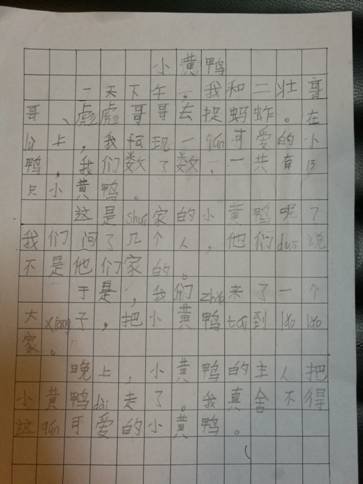 小黄鸭
一天下午,我和二壮哥
哥、虎虎哥哥去捉蚂蚱。在
上,我们发现一可爱的小
鸭,我们数了数,一共有13
只小黄鸭。
这是shuí家的小黄鸭呢?
我们问了几个人,他们dōu说
不是他们家的。
于是,我们zhǎo来了一个
大xiāng子,把小黄鸭tái到lǎo lao
家。
晚上,小黄鸭的主人把
小黄鸭dài走了。我真舍不得
这可爱的小黄鸭。